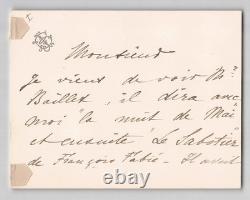 Monsieur
Je viens de voir Mr
Baillet, il dira avec
moi la nuit de Mai
et ensuite "Le Sabotier"
de François Fabié - Il avait